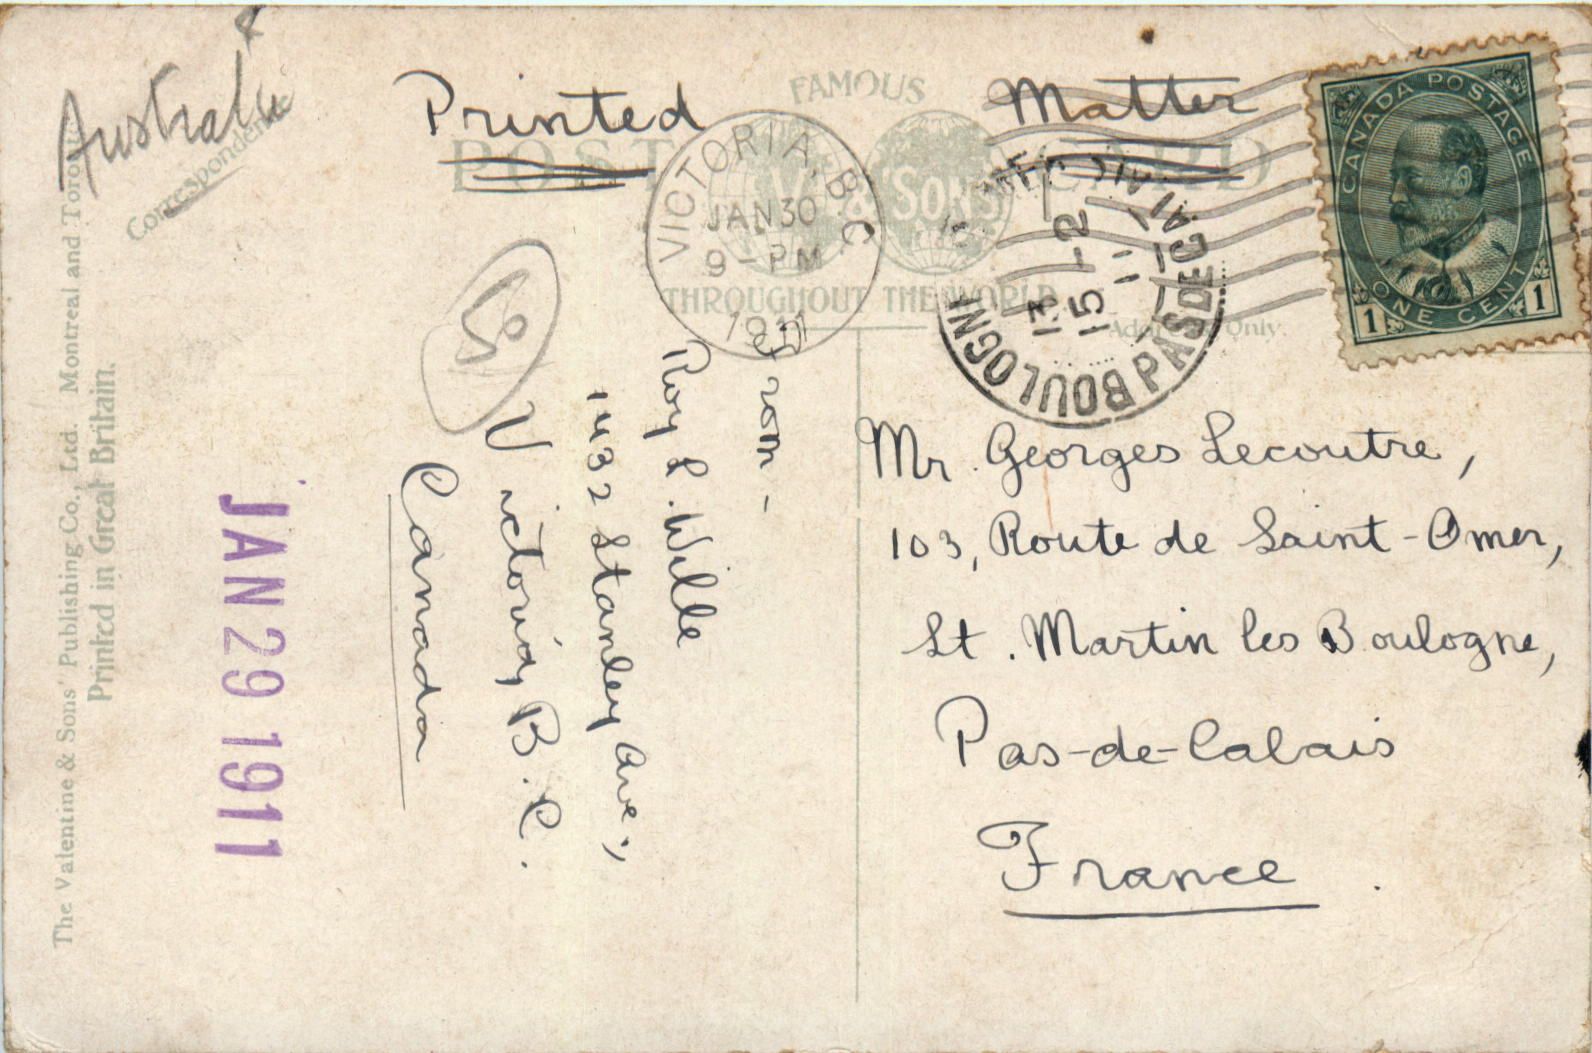 Australie
Printed Matter
FAMOUS
POST CARD
& SONS
THROUGHOUT THE WORLD
Correspondence
VICTORIA, B.C.
JAN 30
9 - PM
BOULOGNE
PAS DE CALAIS
13
15 - 2
11
CANADA POSTAGE
ONE CENT
1 1
Only.
From -
Roy L. Wille
1432 Stanley Ave.,
Victoria, B.C.
Canada
Mr. Georges Lecoutre,
103, Route de Saint-Omer,
St. Martin les Boulogne,
Pas-de-Calais
France.
JAN 29 1911
The Valentine & Sons' Publishing Co., Ltd. Montreal and Toronto.
Printed in Great Britain.